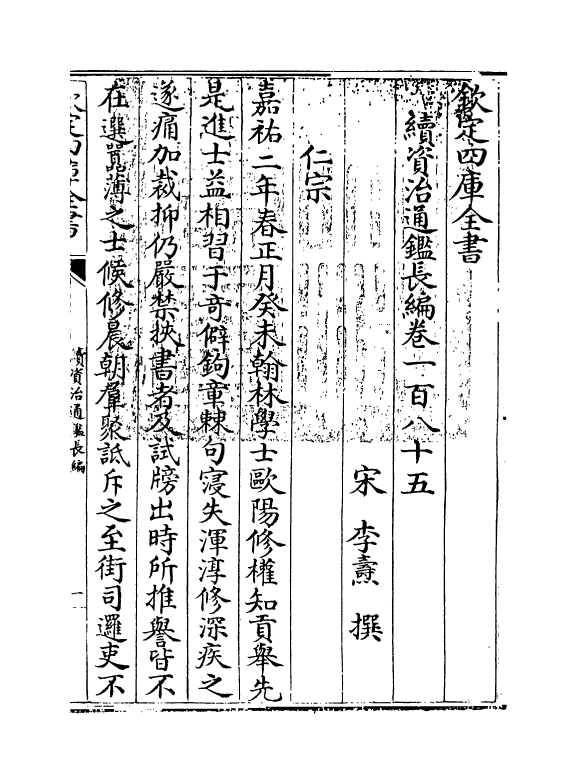 欽定四庫全書
續資治通鑑長編卷一百八十五
宋 李燾 撰
仁宗
嘉祐二年春正月癸未翰林學士歐陽修權知貢舉先
是進士益相習于奇僻鉤章棘句寖失渾淳修深疾之
遂痛加裁抑仍嚴禁挾書者及試牓出時所推譽皆不
在選囂薄之士候修晨朝羣聚詆斥之至街司邏吏不
欽定四庫全書
續資治通鑑長編
一